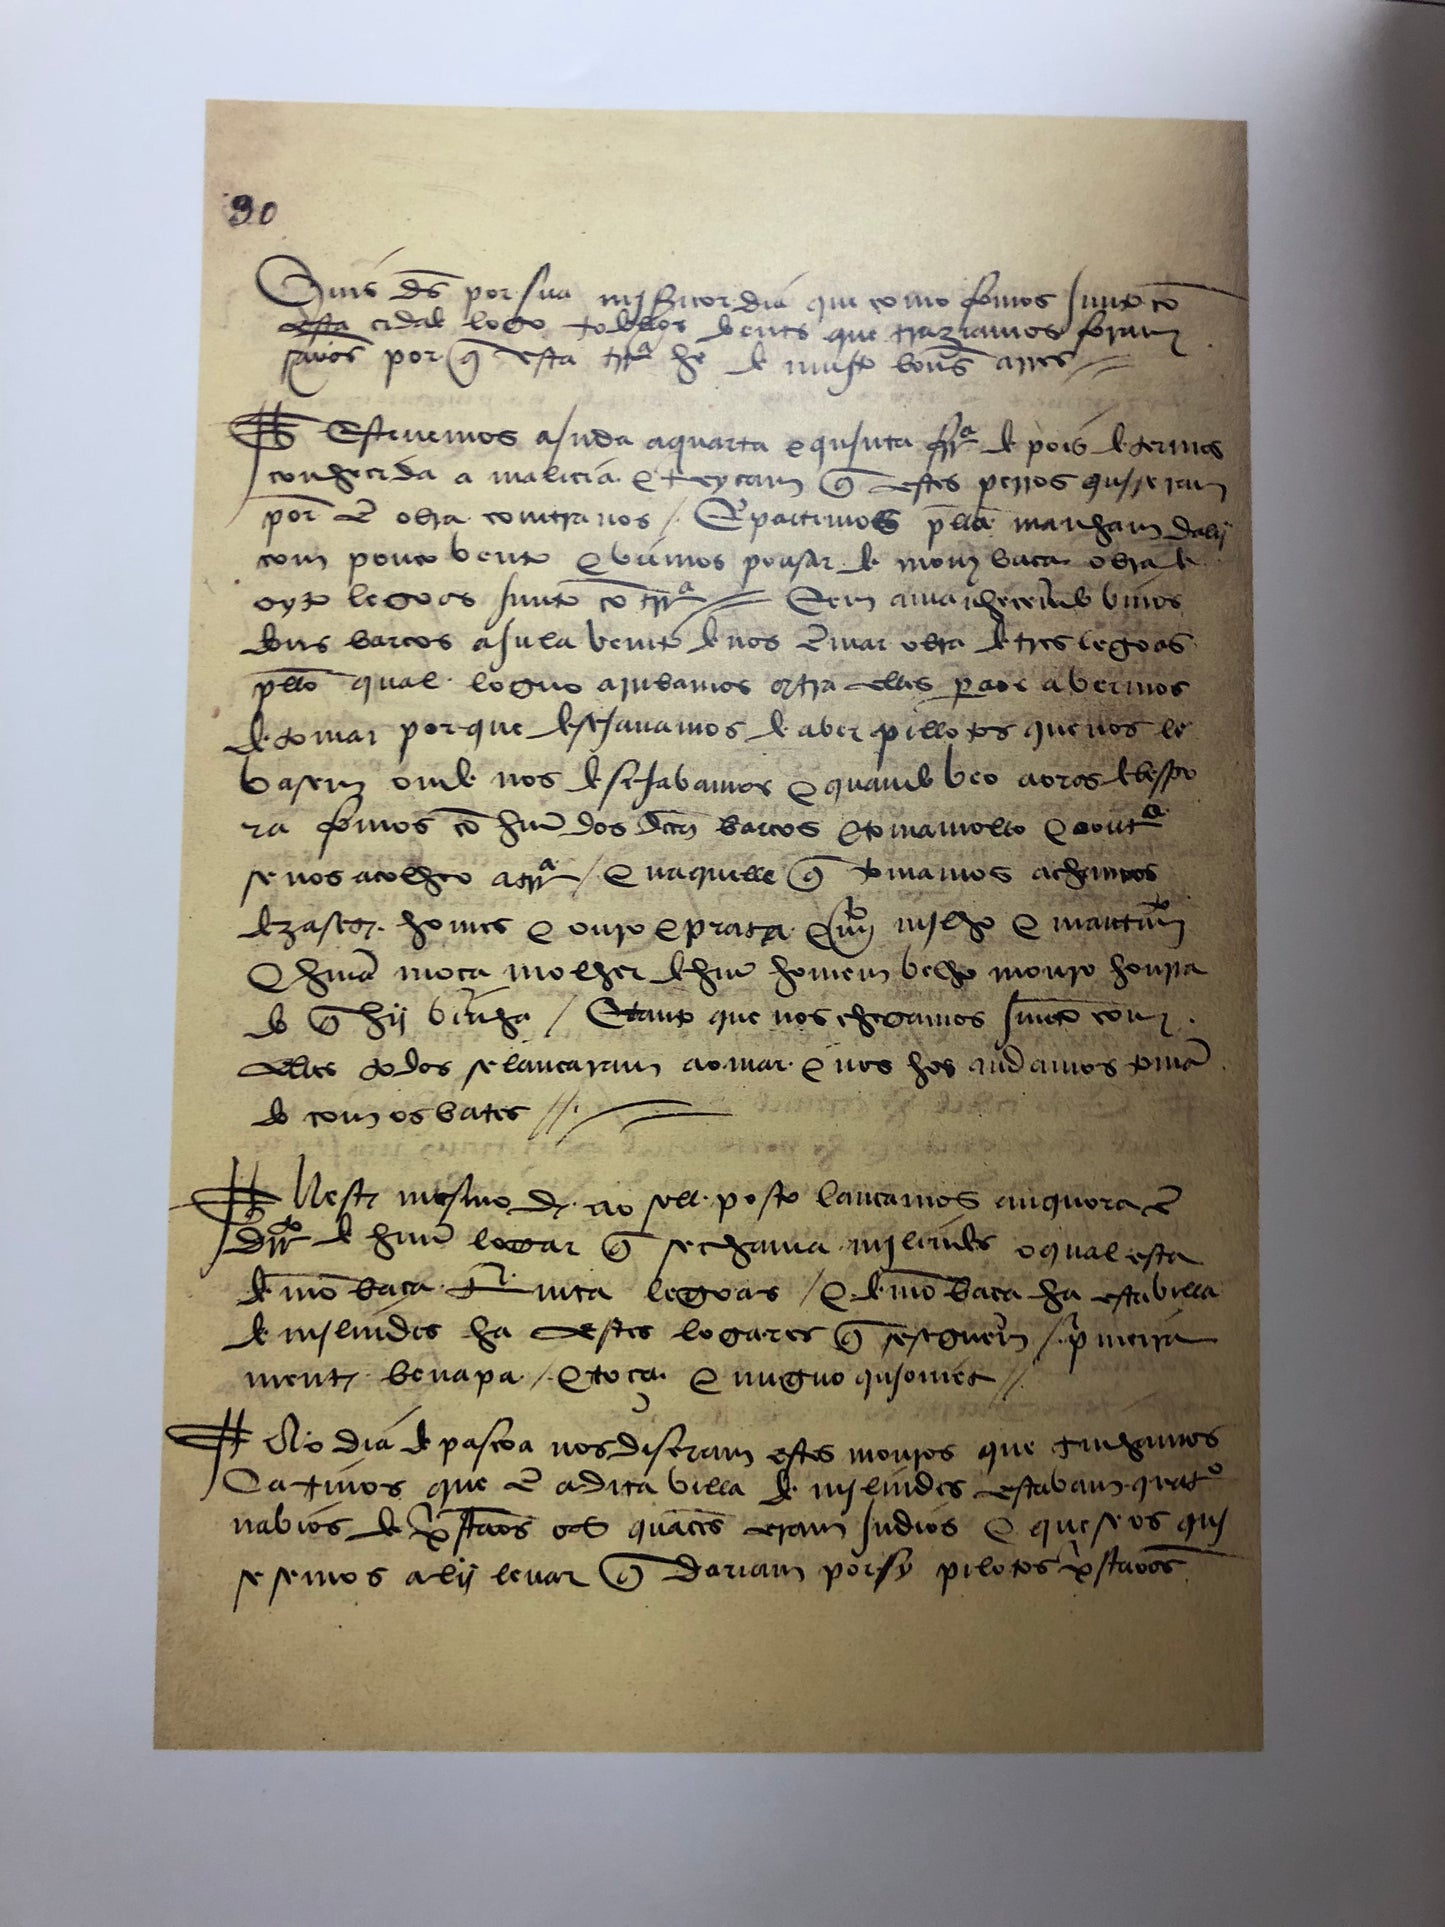 30
Quis ds por sua mjsericordia que como fomos junto cõ
esta cidade logo todollos doentes que traziamos foram
sãaos por q̃ esta trra he de muito bõns arres
Estevemos ajnda a quarta e qujnta frra depois de termos
conhecida a malicia e treycam q̃ estes perros qujseram
por ẽ obra contra nos / E partimos pella manham dalij
com pouco vento e viemos pousar de mombaca obra de
oyto legoas junto cõ trra E em amanhecendo vimos
dous barcos a julavento de nos ẽ mar obra de tres legoas
pello qual loguo aribamos contra elles pera os avermos
de tomar porque desejavamos de aver pillotos que nos le
vasem onde nos desejabamos e quando veo a oras de bespo
ra fomos cõ huũ dos dctos barcos e tomamollo e o outro
se nos acolheo a trra / e naquelle q̃ tomamos achamos
dezasete homes e ouro e prata e mto mjlho e mantimto
E huã moça molher de huũ homem velho mouro honrra
do q̃ hij vinha / E tanto que nos chegamos junto com
elles todos se lancaram ao mar e nos hos andamos toman
do com os bates
Neste mesmo dia ao soll posto lancamos anquora ẽ
drrto de huũ logar q̃ se chama mjlinde o qual esta
de mõbaca trinta legoas / e de mõbaca ha esta villa
de mjlindes ha estes logares q̃ se seguem / primeira
mente benapa / e toça e nuguo qujoniet
Ao dia de pascoa nos diseram estes mouros que tinhamos
Cativos que ẽ a dita villa de mjlindes estavam quatro
nabios de xpstãos os quaees eram jndios e que se os quj
sesemos alij levar q̃ dariam por sy pilotos xpstãoos